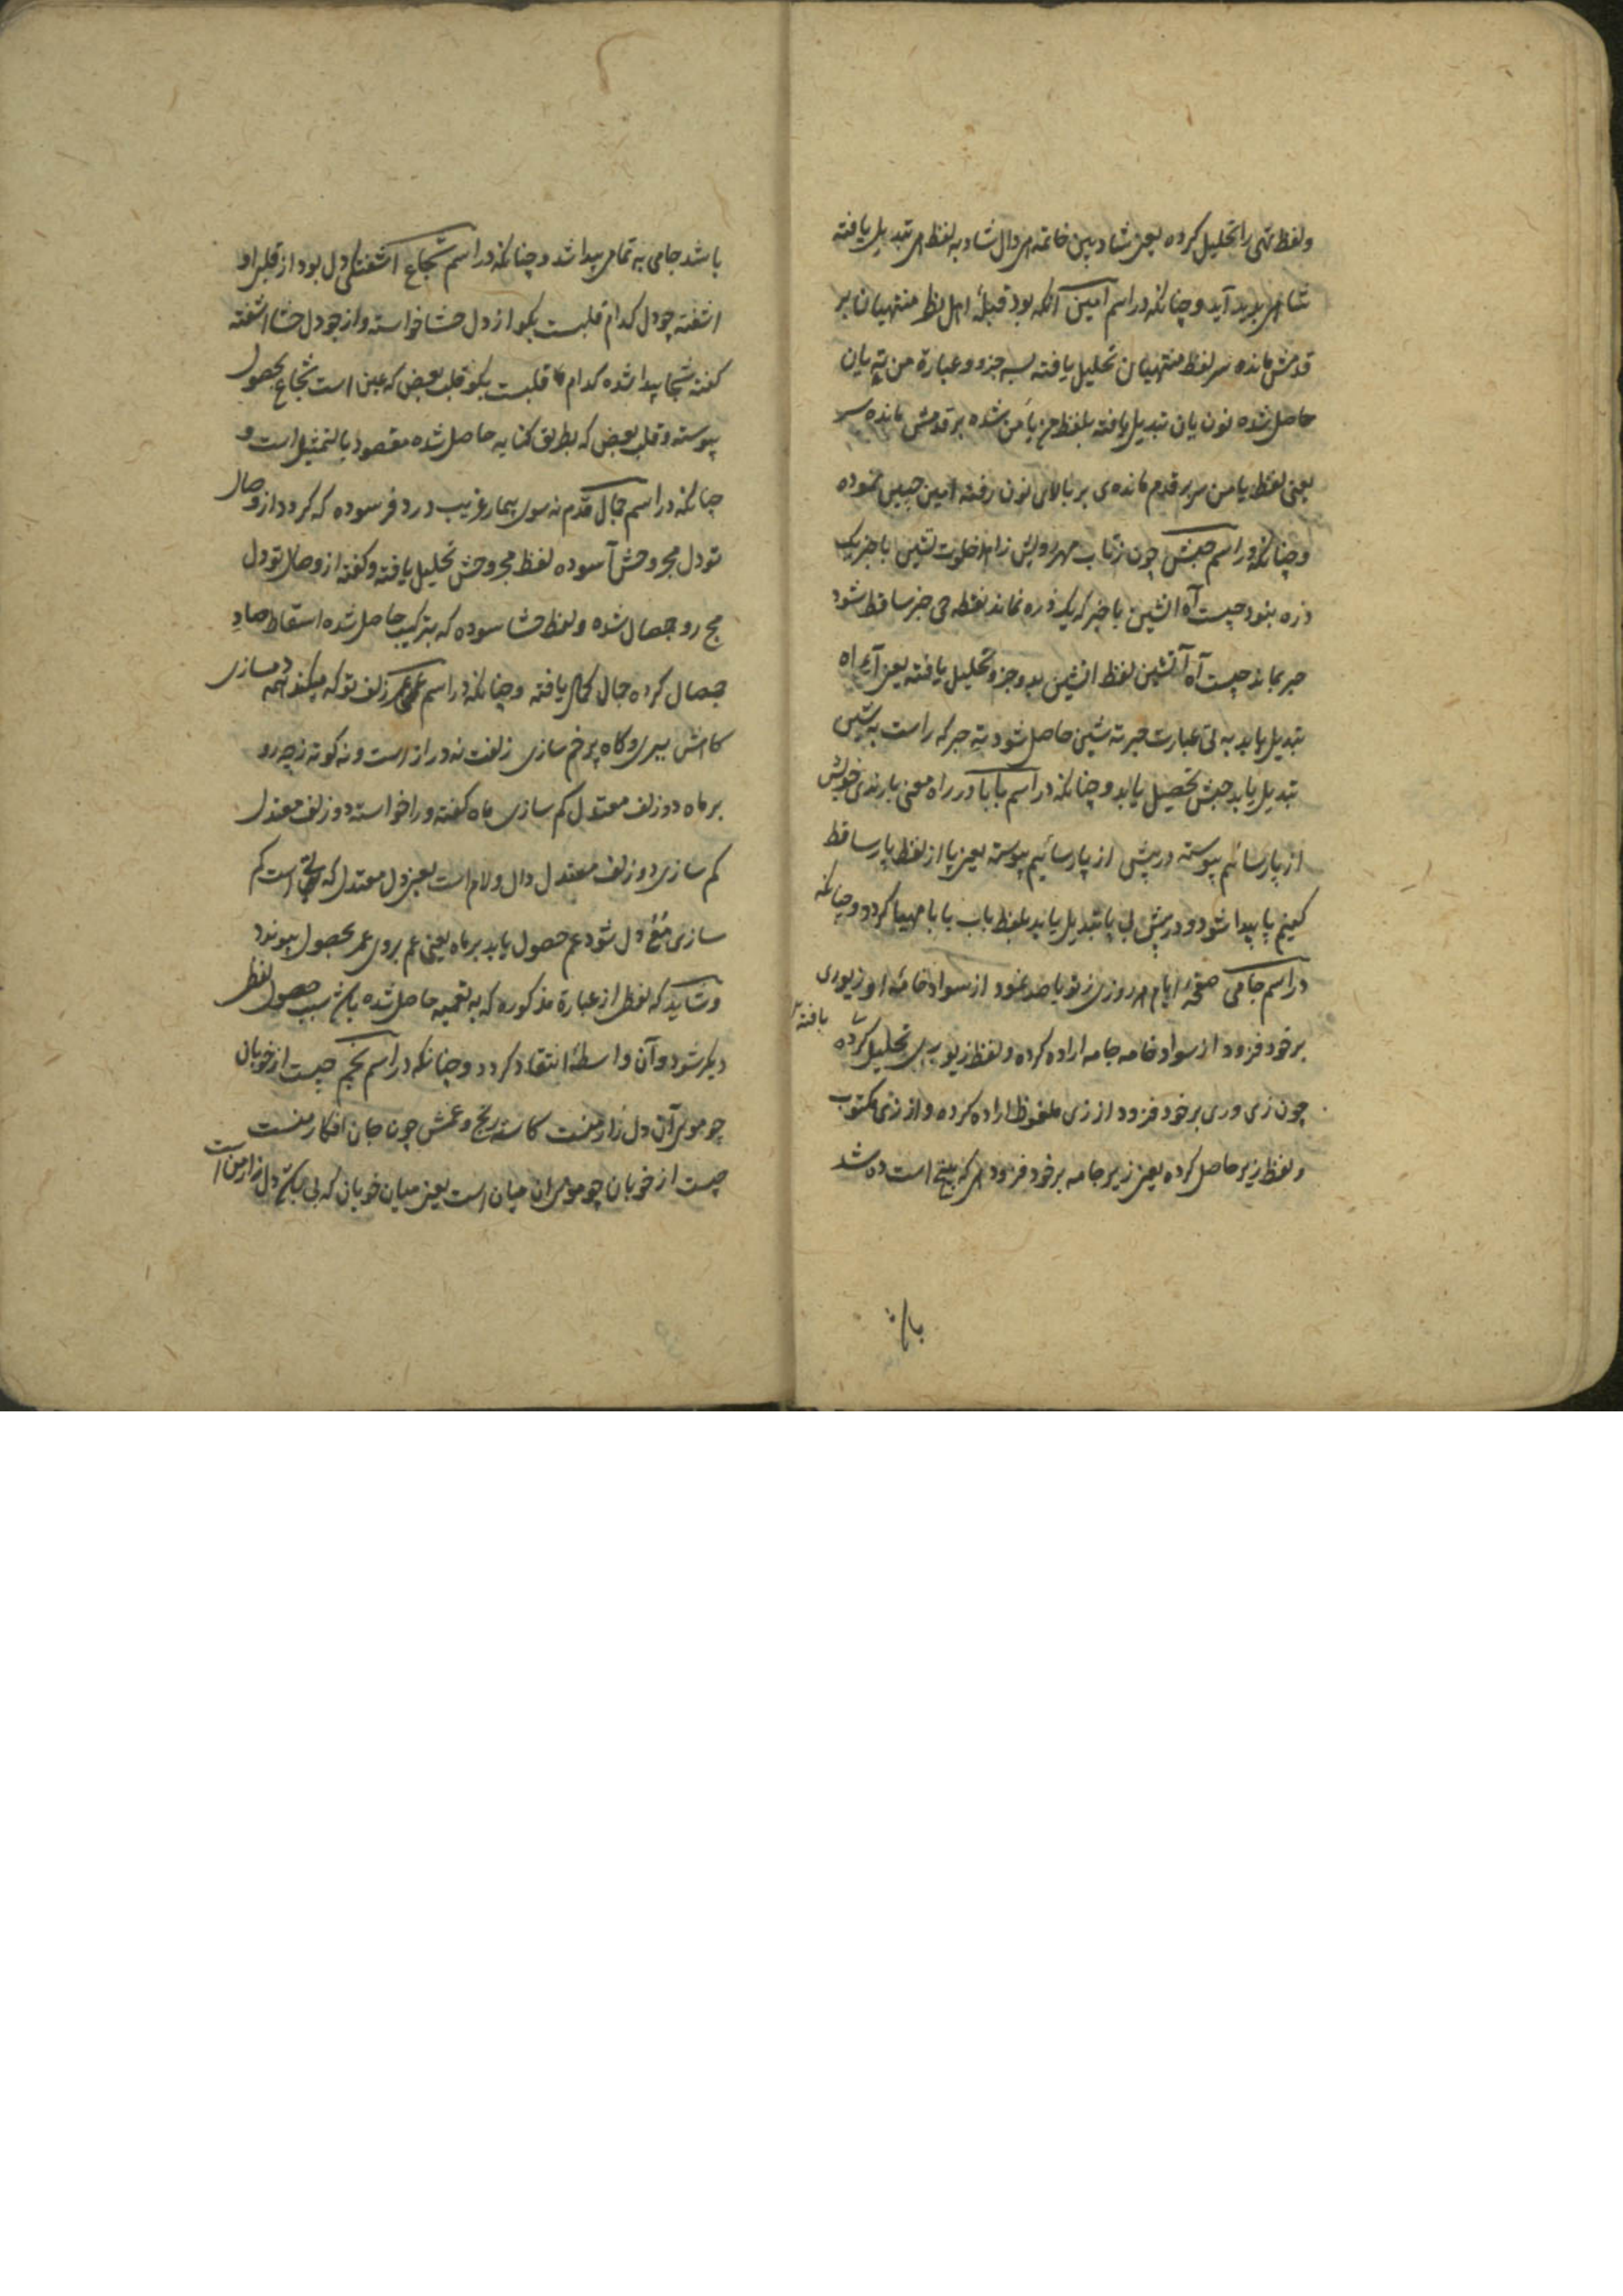 ولفظ تهی را تحلیل کرده یعنی شاد بین خاتمه ای دال شاد به لفظ هی تبدیل یافته
شاهی پدید آید و چنانکه در اسم امین آنکه بود قبلهٔ اهل نظر منتهیان بر
قدمش مانده سر لفظ منتهیان تحلیل یافته بسه جزو و عبارة من ته یان
حاصل شده نون یان تبدیل یافته بلفظ من یا من شده بر قدمش مانده سر
یعنی لفظ یا من سر بر قدم مانده ی بر بالای نون رفته امین جبین نموده
و چنانکه در اسم حبش چون ز تاب مهر رویش زاهد خلوت نشین با خبر یک
ذره بنود چیست آه آتشین با خبر که یک ذره نماند نقطه خبر ساقط شود
حبر بماند چیست آه آتشین لفظ اتشین بدو جزو تحلیل یافته یعنی آه
تبدیل یابد به تی عبارت حبر ته شین حاصل شود ته حبر که راست به شین
تبدیل یابد حبش تحصیل یابد و چنانکه در اسم بابا در راه معنی یا رندی خویش
از پارسائیم پیوسته در پیش از پارسائیم پیوسته یعنی پا از لفظ پارسا قط
کنیم پا پیدا شود و در پیش بی پا تبدیل یابد بلفظ باب بابا مهیا کردد و چنانکه
در اسم جامی صفحهٔ ایام هر روزی ز تو یا صد نمود از سواد خامه او زیوری
یافته
بر خود فزود از سواد خامه جامه اراده کرده و لفظ زیوری تحلیل کرده
چون زی وری بر خود فزود از زی ملفوظ اراده کرده و از زی مکتوب
و لفظ زیر حاصل کرده یعنی زیر جامه بر خود فزود ای که پنج است ده شد
باشد
باشد جامی به تمامی پیدا شد و چنانکه در اسم شجاع اشفتکی دل بود از قبل او
اشفته چو دل کدام قلبست بکو از دل حشا خواسته و از چو دل حشا اشفته
کفته شجا پیدا شده کدام قلبست بکو قلب بعض که عین است شجاع بحصول
پیوسته و قلب بعض که بطریق کنایه حاصل شده مقصود بالتمثیل است و
چنانکه در اسم جمال قدم نه سوی بیمار غریب درد فرسوده که کردد از وصال
تو دل مجروحش آسوده لفظ مجروحش تحلیل یافته و کفته از وصال تو دل
مج رو جصمال شده و لفظ حشا سوده که بترکیب حاصل شده اسقاط صاد
جصمال کرده جمال کمال یافته و چنانکه در اسم عمر زلف تو که میکند همه دمسازی
کاهش ببری و کاه پرخم سازی زلفت نه دراز است و نه کوته ز چه رو
بر ماه دو زلف معتدل کم سازی ماه کفته و را خواسته دو زلف معتدل
کم سازی دو زلف معتدل دال و لام است یعنی دل معتدل که است کم
سازی مع دل شود عم حصول یابد بر ماه یعنی عم بروی عمر بحصول پیوندد
و شاید که لفظ از عبارة مذکوره که به تعمیه حاصل شده باشد سبب حصول لفظ
دیکر شود و آن واسطهٔ انتقاد کردد و چنانکه در اسم نجم چیست از خوبان
چو موی آن دل زار منست کاسته رنج و غمش چون جان افکار منست
چیست از خوبان چو موی آن میان است یعنی میان خوبان که بی دل زار من است